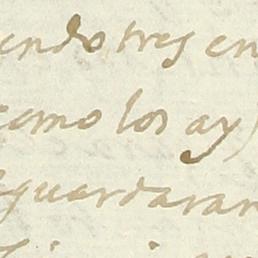 endo tres en
como los ay)
guardaran